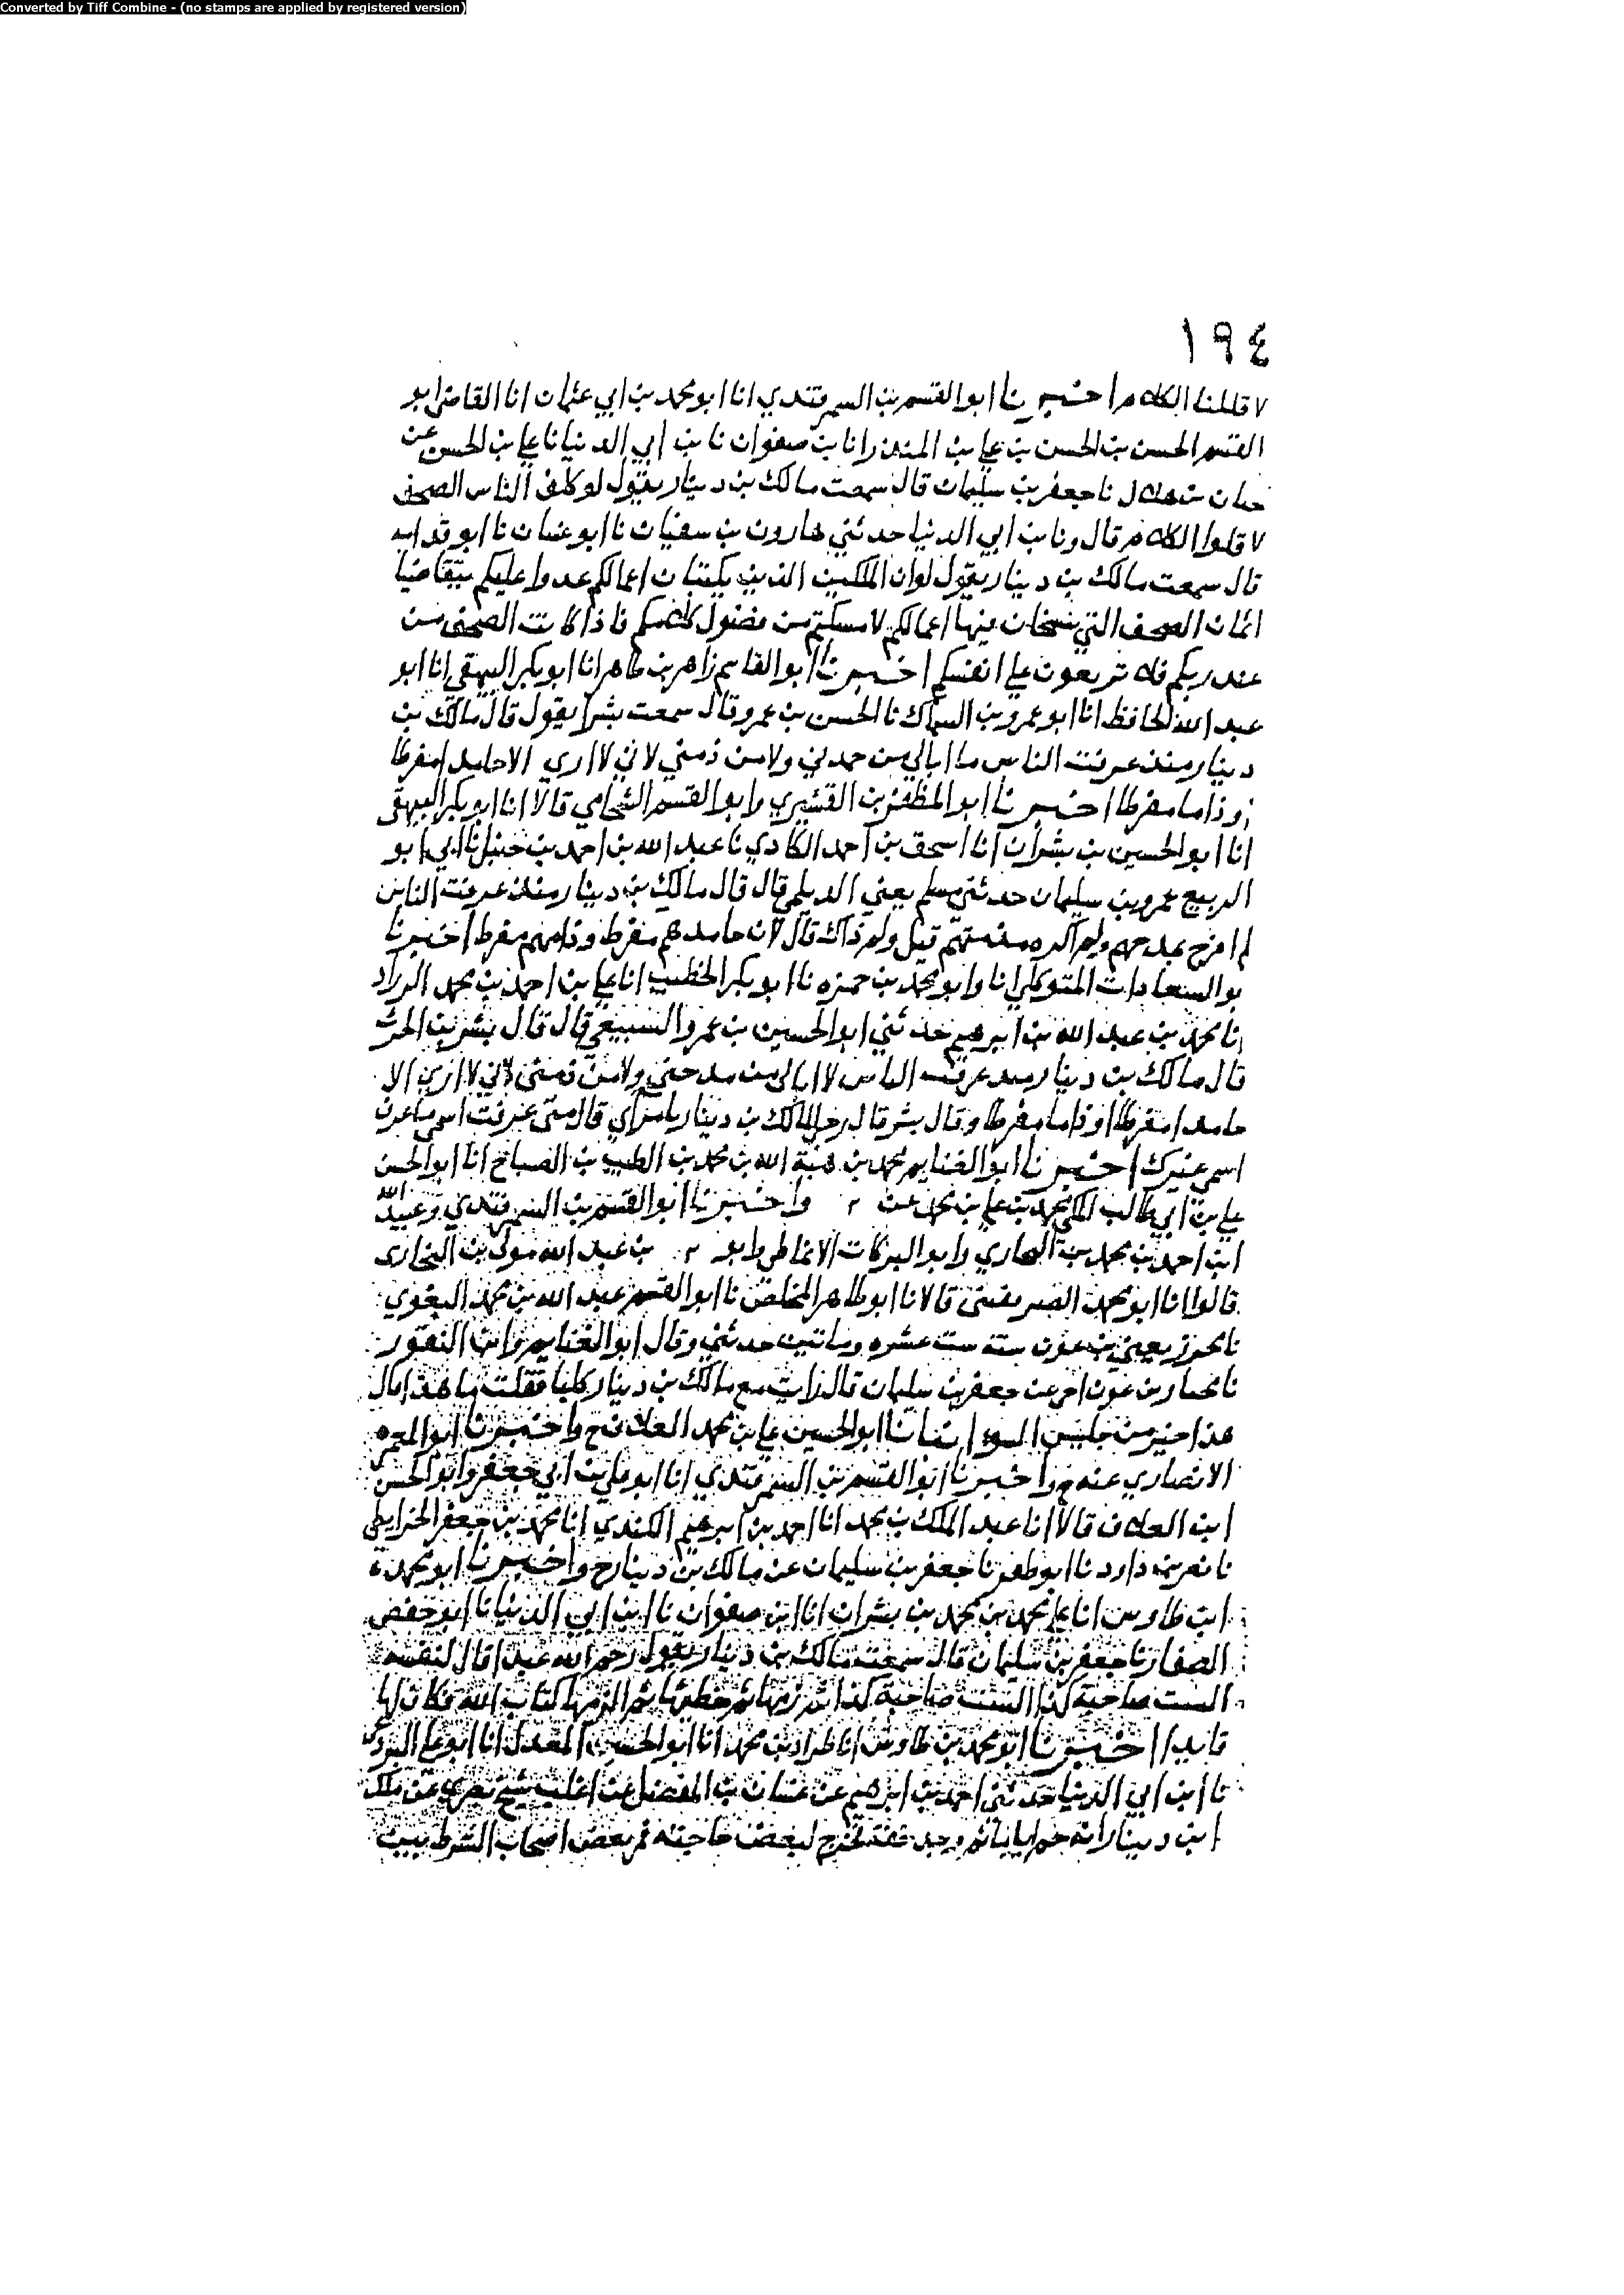 Converted by Tiff Combine - (no stamps are applied by registered version)
١٩٤
لاقللنا الكلام اخبرنا ابو القسم بن السمرقندي انا ابو محمد بن ابي عثمان انا القاضي ابو
القسم الحسن بن الحسن بن علي بن المنذر انا بن صفوان نا بن ابي الدنيا نا علي بن الحسن عن
حبان بن هلال نا جعفر بن سليمان قال سمعت مالك بن دينار يقول لو كلف الناس الصحف
لاقلوا الكلام قال ونا بن ابي الدنيا حدثني هارون بن سفيان نا ابو غسان نا ابو قدامه
قال سمعت مالك بن دينار يقول لو ان الملكين الذين يكتبان اعمالكم عدوا عليكم يتقاضيا
اثمان الصحف التي ينسخان فيها اعمالكم لامسكتم من فضول كلامكم فاذا كانت الصحف من
عند ربكم فلا تربعون علي انفسكم اخبرنا ابو القاسم زاهر بن طاهر انا ابو بكر البيهقي انا ابو
عبد الله الحافظ انا ابو عمرو بن السماك نا الحسن بن عمرو قال سمعت بشرا يقول قال مالك بن
دينار منذ عرفت الناس ما ابالي من حمدني ولا من ذمني لاني لا اري الا حامدا مفرطا
او ذاما مفرطا اخبرنا ابو المظفر بن القشيري وابو القسم الشحامي قالا انا ابو بكر البيهقي
انا ابو الحسين بن بشران انا اسحق بن احمد الكادي نا عبد الله بن احمد بن حنبل نا ابي ابو
الربيع عمرو بن سليمان حدثني مسلم يعني الديلمي قال قال مالك بن دينار منذ عرفت الناس
لم افرح بمدحهم ولم اكره مذمتهم قيل ولم ذاك قال لان حامدهم مفرط وذامهم مفرط اخبرنا
بو السعادات المتوكلي انا وابو محمد بن حمزه نا ابو بكر الخطيب انا علي بن احمد بن محمد الرزاد
انا محمد بن عبد الله بن ابرهيم حدثني ابو الحسين بن عمرو السبيعي قال قال بشر بن الحرث
قال مالك بن دينار منذ عرفت الناس لا ابالي من مدحني ولا من ذمني لاني لا اري الا
حامدا مفرطا او ذاما مفرطا وقال بشر قال رجل لمالك بن دينار يا مراي قال متى عرفت اسمي ما عرف
اسمي غيرك اخبرنا ابو الغنايم محمد بن هبة الله بن محمد بن الطيب بن الصباح انا ابو الحسن
علي بن ابي طالب المكي محمد بن علي بن محمد عن ٢ واخبرنا ابو القسم بن السمرقندي وعبد الله
ابن احمد بن محمد بن البخاري وابو البركات الانماطي وابو ٢ بن عبد الله مولى بن البخاري
قالوا انا ابو محمد الصريفيني قالا نا ابو طاهر المخلص نا ابو القسم عبد الله بن محمد البغوي
نا محرز يعني بن عون سنة ست عشره وماتين حدثني وقال ابو الغنايم وابن النقور
نا مختار بن عون اخو عن جعفر بن سليمان قال رايت مع مالك بن دينار كلبا فقلت ما هذا قال
هذا خير من جليس السوء انبانا ابو الحسين علي بن محمد العلاف ح واخبرنا ابو المعمر
الانصاري عنه ح واخبرنا ابو القسم بن السمرقندي انا ابو علي بن ابي جعفر وابو الحسن
ابن العلاف قالا انا عبد الملك بن محمد انا احمد بن ابرهيم الكندي انا محمد بن جعفر الخرايطي
نا نصر بن داود نا ابو ظفر نا جعفر بن سليمان عن مالك بن دينار ح واخبرنا ابو محمد
ابن طاوس انا علي بن محمد بن محمد بن بشران انا ابن صفوان نا ابن ابي الدنيا نا ابو حفص
الصفار نا جعفر بن سليمان قال سمعت مالك بن دينار يقول رحم الله عبدا قال لنفسه
الست صاحبة كذا الست صاحبة كذا ثم زمها ثم خطمها ثم الزمها كتاب الله فكان لها
قايدا اخبرنا ابو محمد بن طاوس انا طراد بن محمد انا ابو الحسين المعدل انا ابو علي البردعي
نا ابن ابي الدنيا حدثني احمد بن ابرهيم عن غسان بن المفضل عن اغلب شيخ بصري عن ملك
ابن دينار انه حم اياما ثم وجد خفة فخرج لبعض حاجته فمر بعض اصحاب الشرط بين